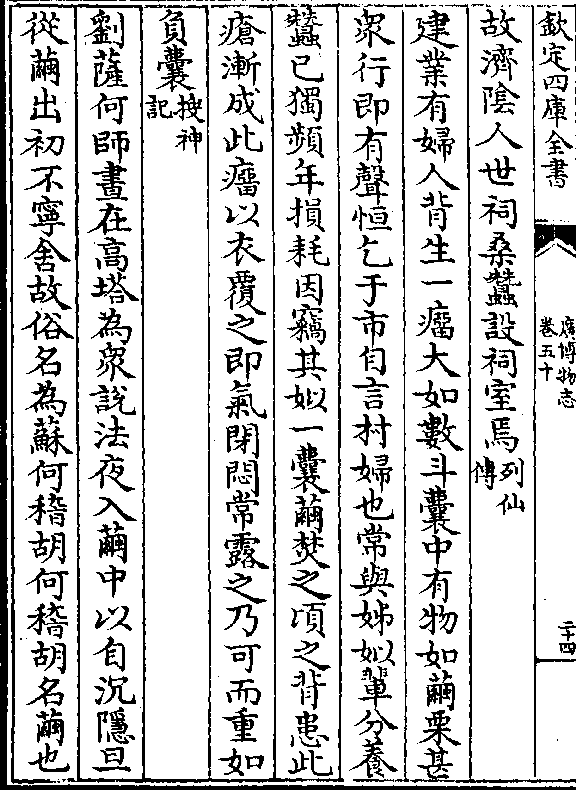 欽定四庫全書
廣博物志
卷五十
二十四
故濟陰人世祠桑蠶設祠室焉列仙
傳
建業有婦人背生一瘤大如數斗囊中有物如繭栗甚
衆行即有聲恒乞于市自言村婦也常與姊姒輩分養
蠶己獨頻年損耗因竊其姒一囊繭焚之頃之背患此
瘡漸成此瘤以衣覆之即氣閉悶常露之乃可而重如
負囊搜神
記
劉薩何師晝在高塔為衆說法夜入繭中以自沉隱旦
從繭出初不寧舍故俗名為蘇何稽胡何稽胡名繭也